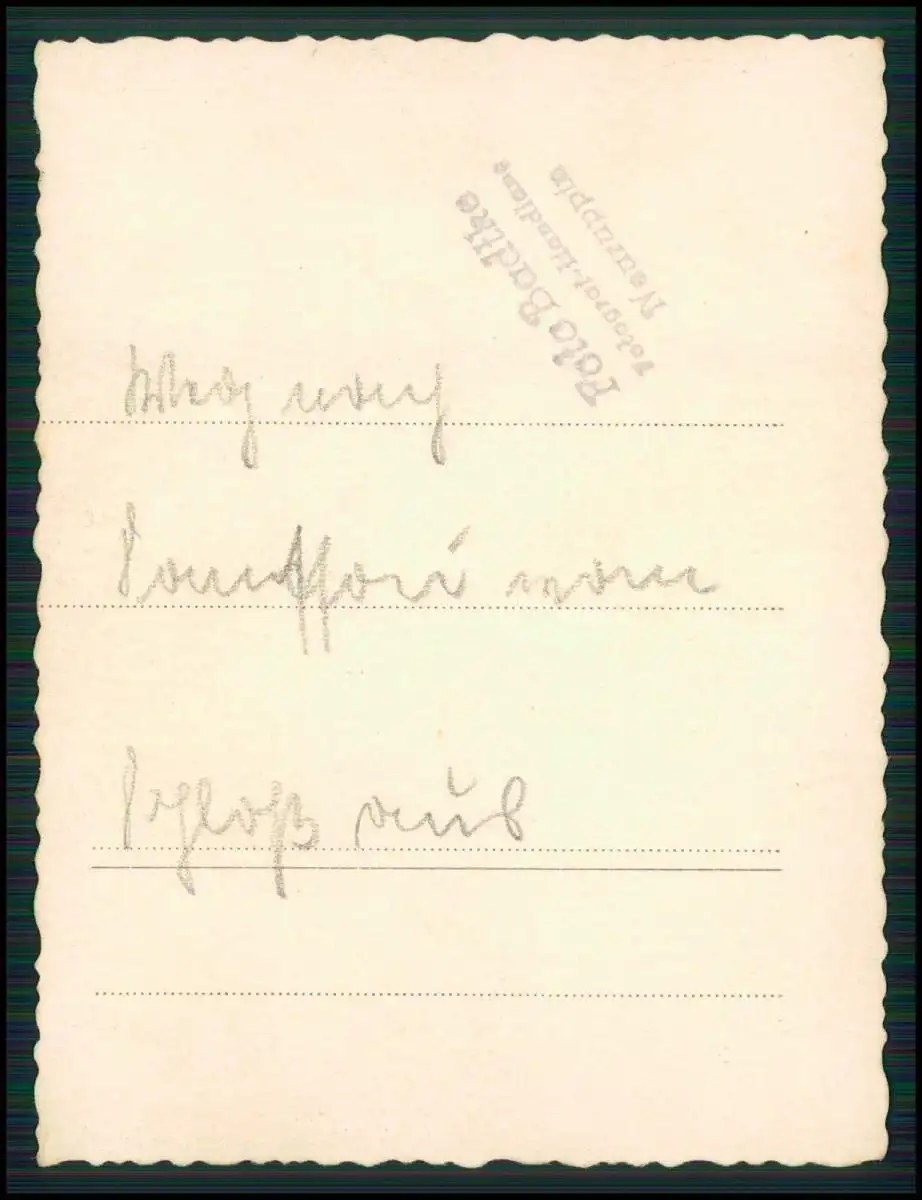 Foto Badtke
Fotograf.-Handlung
Neuruppin
Weg nach
Sanssoui vom
Schloß aus